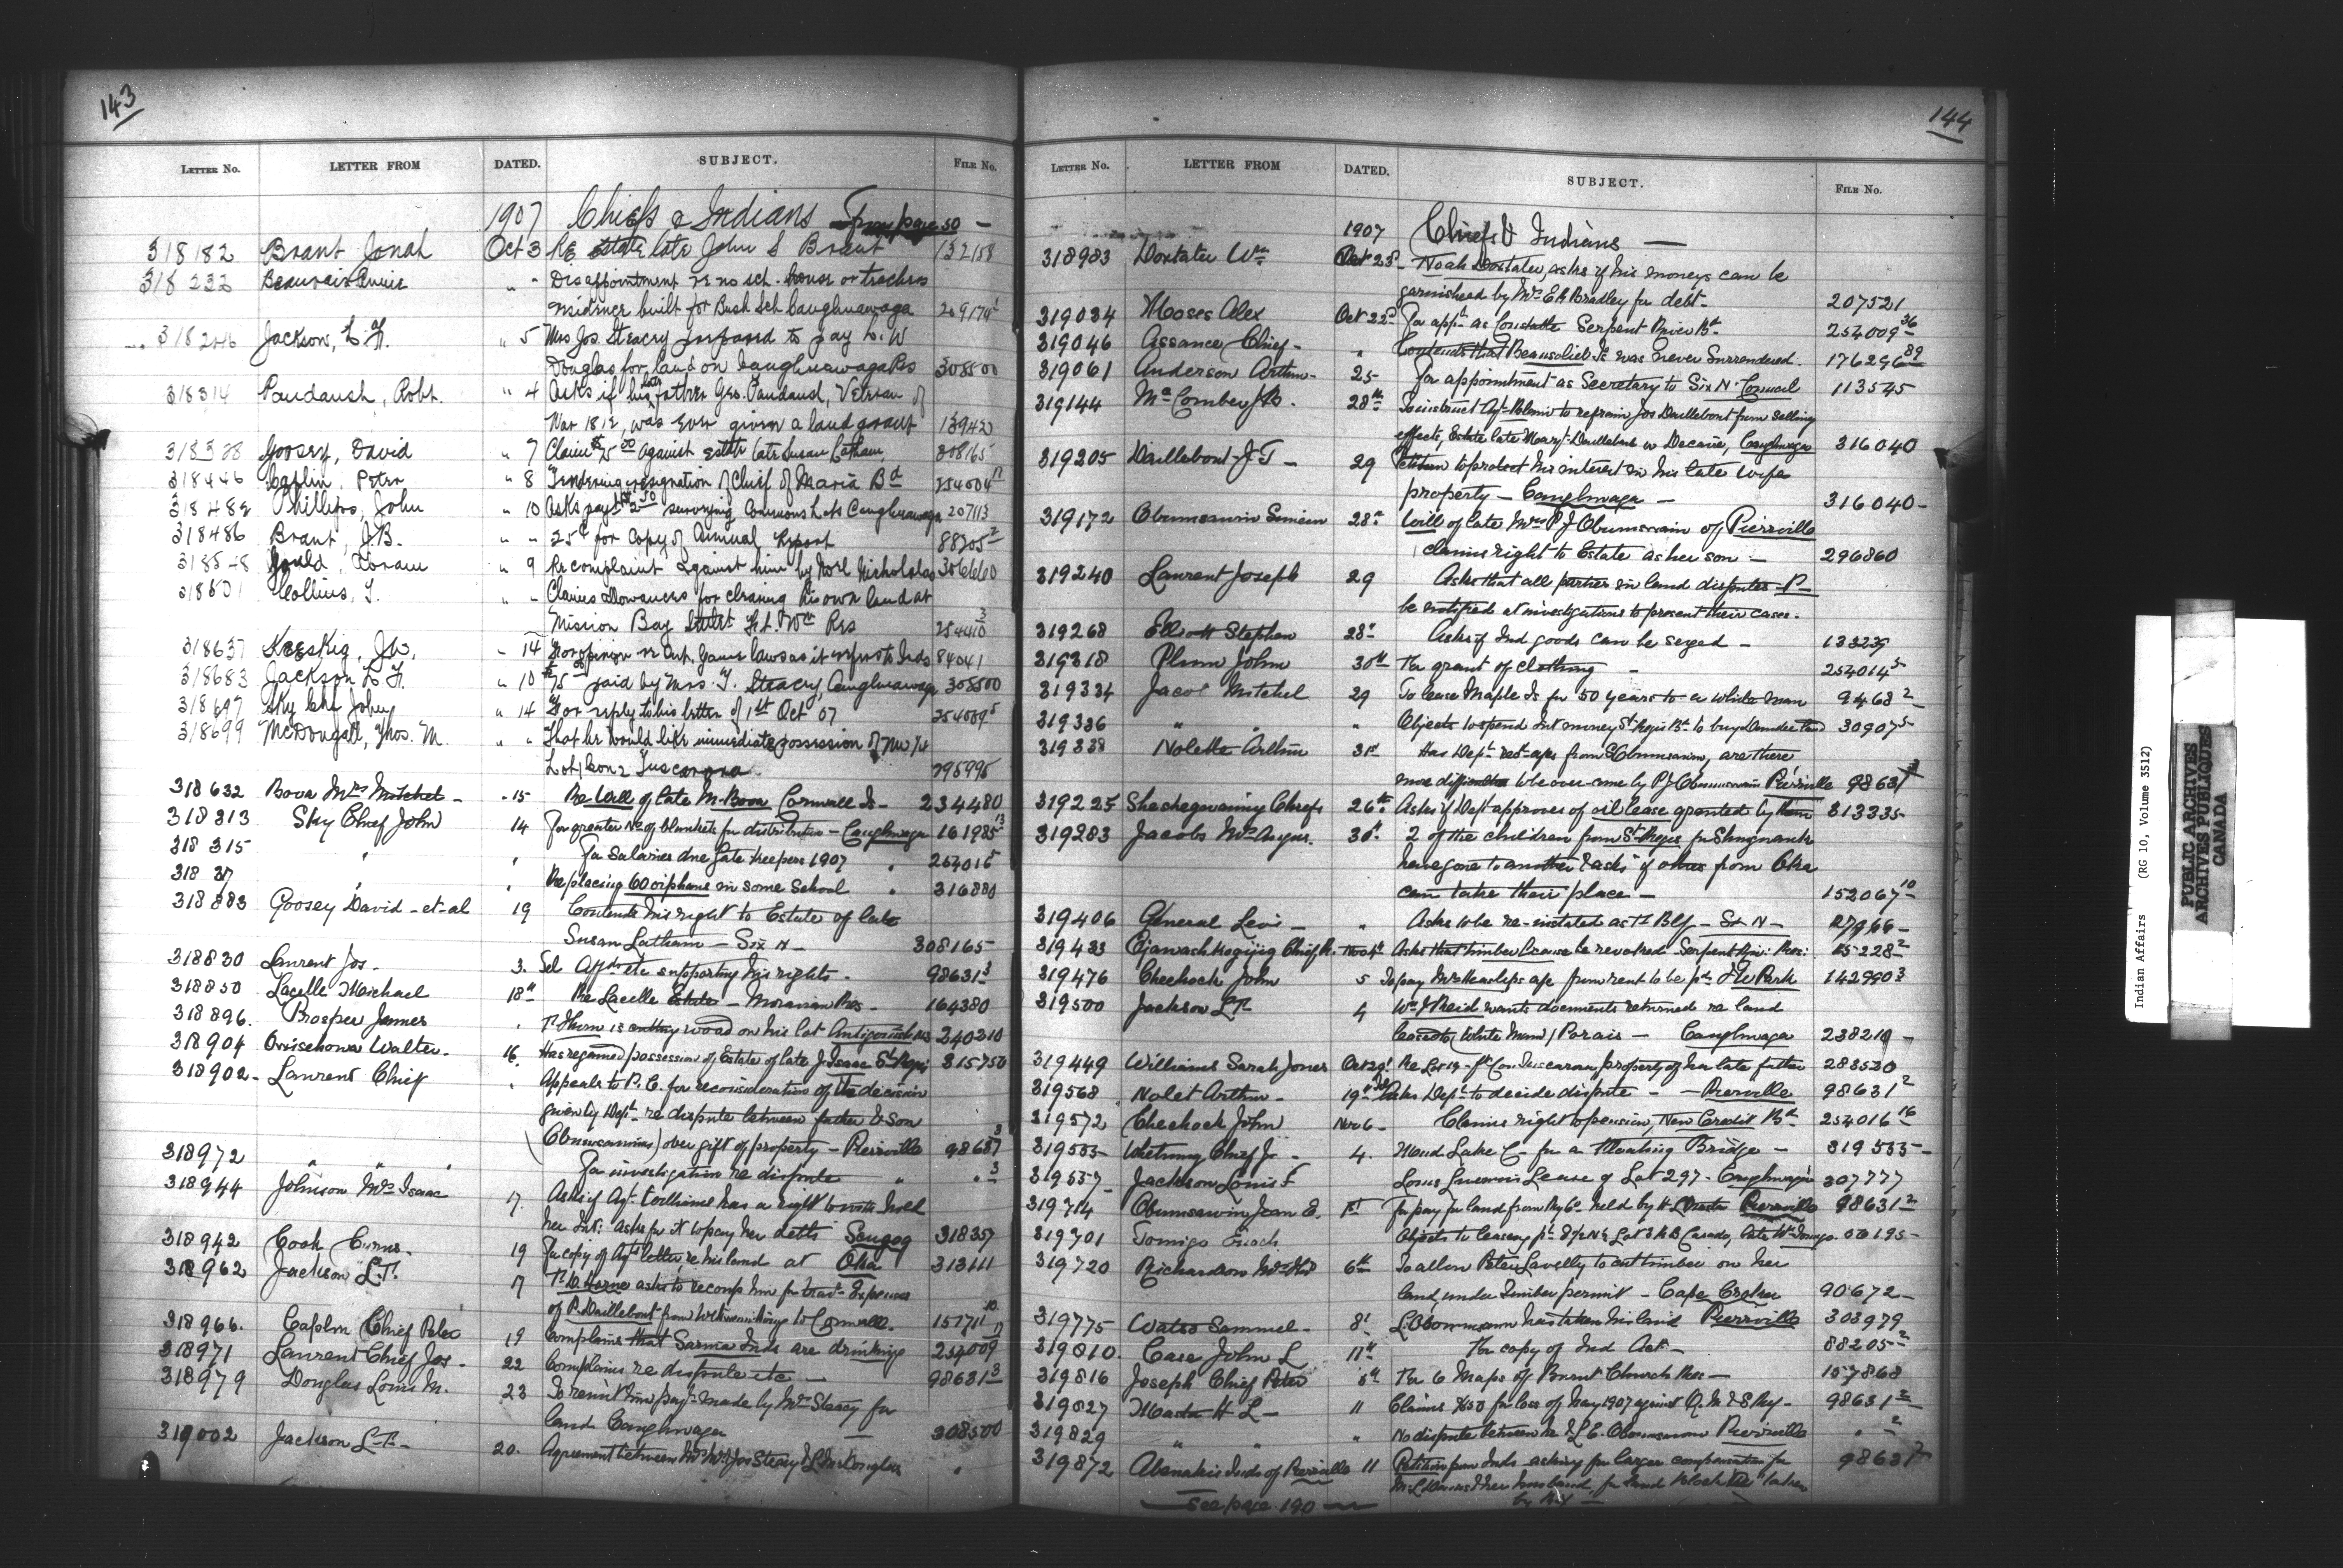 143
LETTER NO. LETTER FROM DATED. SUBJECT. FILE NO.
1907 Chiefs & Indians From page 50 —
318182 Brant Jonah Oct 3 Re estate late John S Brant 132158
318232 Beauvais " - Disappointment re no sch. house or teachers
residence built for Bush Sch Caughnawaga
318246 Jackson, L. F. " 5 Mrs Jos. Stracey prepared to pay L. W
Douglas for land on Caughnawaga Res 308500
318314 Paudaush, Robt. " 4 Asks if his late father Geo. Paudaush, Veteran of
War 1812, was ever given a land grant 13942
Goosey, David " 7 Claim against estate late Susan Latham, 308165
318446 Caplin, Peter " 8 Tendering resignation of Chief of Maria Bd 254004
318482 Phillips, John " 10 Asks payt surveying Commons Lots Caughnawaga 207113
318486 Brant, J.B. " - 25¢ for copy of Annual Report 88205²
Gould, " 9 Re complaint against him by Noel Nicholas 306660
Collins, T. " - Claims allowances for clearing his own land at
Mission Bay Ft. Wm Res 254410³
318637 Keeskig, J.W., - 14 For opinion re Ont. Game laws as it refers to Inds 84041
318683 Jackson L F. " 10 $75 paid by Mrs. J. Stracey, Caughnawaga 308500
318697 Sky John " 14 For reply to his letter of 1st Oct 07
318699 McDougall, Thos. M. " - That he would like immediate possession of
Lot 1 Con 2 Tuscarora 295995
318632 Bova Mrs Mitchel - " 15 Re Will of late M. Bova Cornwall Is - 234480
318313 Sky Chief John 14 For greater No of blankets for distribution - Caughnwaga 161985¹³
318 315 " " for Salaries due gate keepers 1907 "
318 " " Re placing 60 orphans in some School " 316880
318883 Goosey David - et - al 19 Contends his right to Estate of late
Susan Latham — Six N — 308165
318830 Laurent Jos - 3. Sel Affdts etc supporting his rights - 98631³
318850 Lacelle Michael 18" Re Lacelle Estate - Moravian Res - 164380
318896. Prosper James " is cutting wood on his lot 240310
318904 Walter - 16. Has regained possession of Estate of late J. Isaac St Regis 315750
318902 - Laurent Chief " Appeals to P. C. for reconsideration of the decision
given by Dept. re dispute between father & son
(Obumsawins) over gift of property - Pierreville 98631³
318972 " " " for investigation re dispute " " ³
318944 Johnson Mrs Isaac 17. Asks if Agt. Williams has a right to withhold
her Int: asks for it to pay her debts Scugog 318357
318942 Cook 19 For copy of Agts letter re his land at Oka 313111
318962 Jackson L.F. 17 asks to recomp him for trav- Expenses
of P. Daillebout from to Cornwall -
318966. Caplin Chief Peter 19 Complains that Sarnia Inds are drinking 254009
318971 Laurent Chief Jos - 22 Complains re dispute etc — 98631³
318979 Douglas Louis M. 23 To remit him payt made by Mrs Stacey for
land Caughnwaga — 308500
319002 Jackson L.F. - 20. Agreement between Mr & Mrs Jos Stacey & L M Douglas "
144
LETTER NO. LETTER FROM DATED. SUBJECT. FILE NO.
1907 Chiefs & Indians —
318983 Doxtater Wm Oct 23d Noah Doxtater, asks if his moneys can be
garnisheed by Mrs E A Bradley for debt - 207521
319034 Moses Alex Oct 22d For appt as Constable Serpent River Bd 254009³⁶
319046 Assance Chief - " Contends that Beausoliel Is was never Surrendered. 176296⁸⁹
319061 Anderson Arthur - 25 - for appointment as Secretary to Six N. Council 113545
319144 McComber J B. 28th To instruct Agt Blain to refrain Jos Daillebout from selling
effects, Estate late Mary Daillebout Caughnwaga 316040
319205 Daillebout - J T - 29 Petition to protect his interest in his late wifes
property — Caughnwaga — 316040 -
319172 Obumsawin Simeon 28th Will of late Mrs P J Obumsawin of Pierreville
claims right to Estate as her son — 296860
319240 Laurent Joseph 29 Asks that all parties in land disputes - P -
be notified at investigations to present their cases -
319268 Elliott Stephen 28" Asks if Ind goods can be seized - 133239
319318 Plum John 30th For grant of clothing - 254014⁵
319334 Jacot Mitchel 29 To lease Maple Is for 50 years to a white man 9468²
319336 " " " Objects to spend Int money St Regis Bd to buy Dundee land 30907⁵
319338 Nolette Arthur 31st Has Dept recd aps from Obumsawin, are there
more difficulties to be overcome by P J Obumsawin Pierreville 98631
319225 Sheshegwaning Chiefs 26th Asks if Dept approves of oil lease granted by them 313335
319283 Jacobs Mrs Angus. 30". 2 of the children from St Regis for Shingwauk
have gone to another & asks if others from Oka
can take their place — 152067¹⁰
319406 General Levi - " Asks to be re-instated as Bly - Six N - 27966 -
319433 Ojawashkogijig Chief Asks that timber license be revoked - Serpent Riv: Res: 15228²
319476 Chechock John 5 142990³
319500 Jackson L F. 4 Wm J Reid wants documents returned re land
leased to (White Man) Parais — Caughnwaga 238210 -
319449 Williams Sarah Jones Oct 29" Re Lot 19 - Con Tuscarora, property of her late father 283520
319568 Nolet Arthur - 19" Asks Dept to decide dispute - - Pierreville 98631²
319572 Chechock John Nov 6 - Claims right to pension, New Credit Bd 254016¹⁶
319535 - Whetung Chief J - 4. Mud Lake C - for a Floating Bridge — 319535 -
319557 - Jackson Louis F Lease of Lot 297 - Caughnwaga 307777
319714 Obumsawin Jean E. 1st For pay for land from Ry Co. held by H. Masta Pierreville 98631²
319701 Tomigo Enoch Objects to leasing
319720 Richardson Mrs 6th To allow Peter Lavelly to cut timber on her
land, under timber permit - Cape Croker 90672 -
319775 Watso Sammuel - 8" L. Obomsawin has taken his land Pierreville 303979
319810. Case John L 11" For copy of Ind Act - 88205²
319816 Joseph Chief Peter 5th For 6 Maps of Burnt Church Res — 157868
319827 Masta H L — 11 Claims $150 for loss of hay 1907 against Q. M & S Ry - 98631²
319829 " " " No dispute between he & L. E. Obumsawin Pierreville " ²
319872 Abenakis Inds of Pierreville 11 Petition from Inds asking for larger compensation for
& her husband, for land which is taken
by Ry —
See page 190 —
Indian Affairs (RG 10, Volume 3512)
PUBLIC ARCHIVES
ARCHIVES PUBLIQUES
CANADA